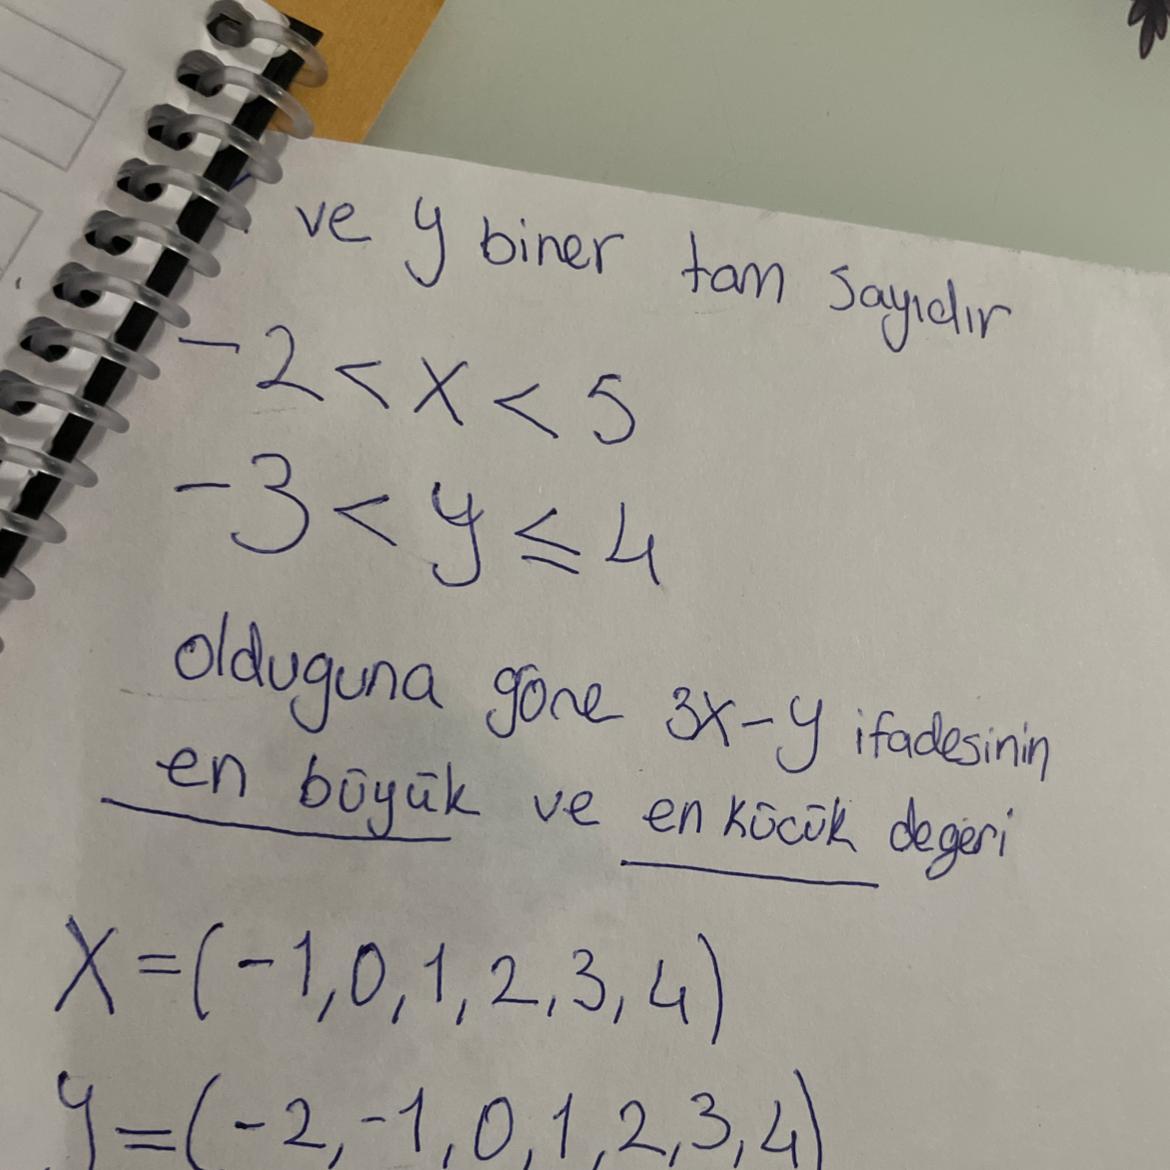 ve y biner tam sayıdır
-2 < x < 5
-3 < y ≤ 4
olduguna göre 3x-y ifadesinin
en büyük ve en kücük degeri
X = (-1, 0, 1, 2, 3, 4)
y = (-2, -1, 0, 1, 2, 3, 4)